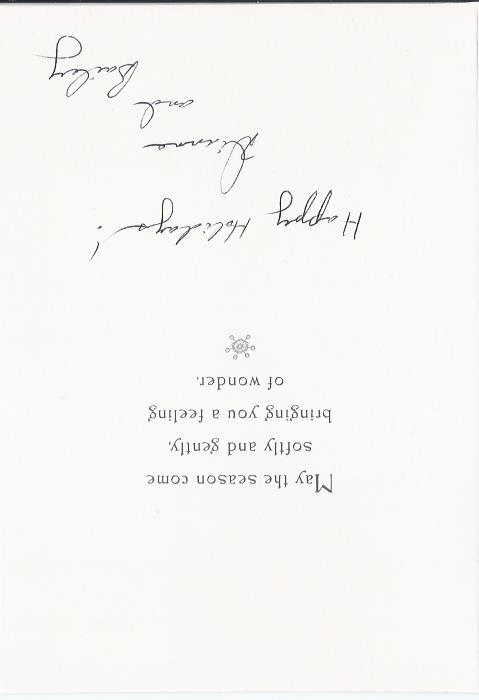 May the season come
softly and gently,
bringing you a feeling
of wonder.
Happy Holidays!
Dianna
and
Bailey